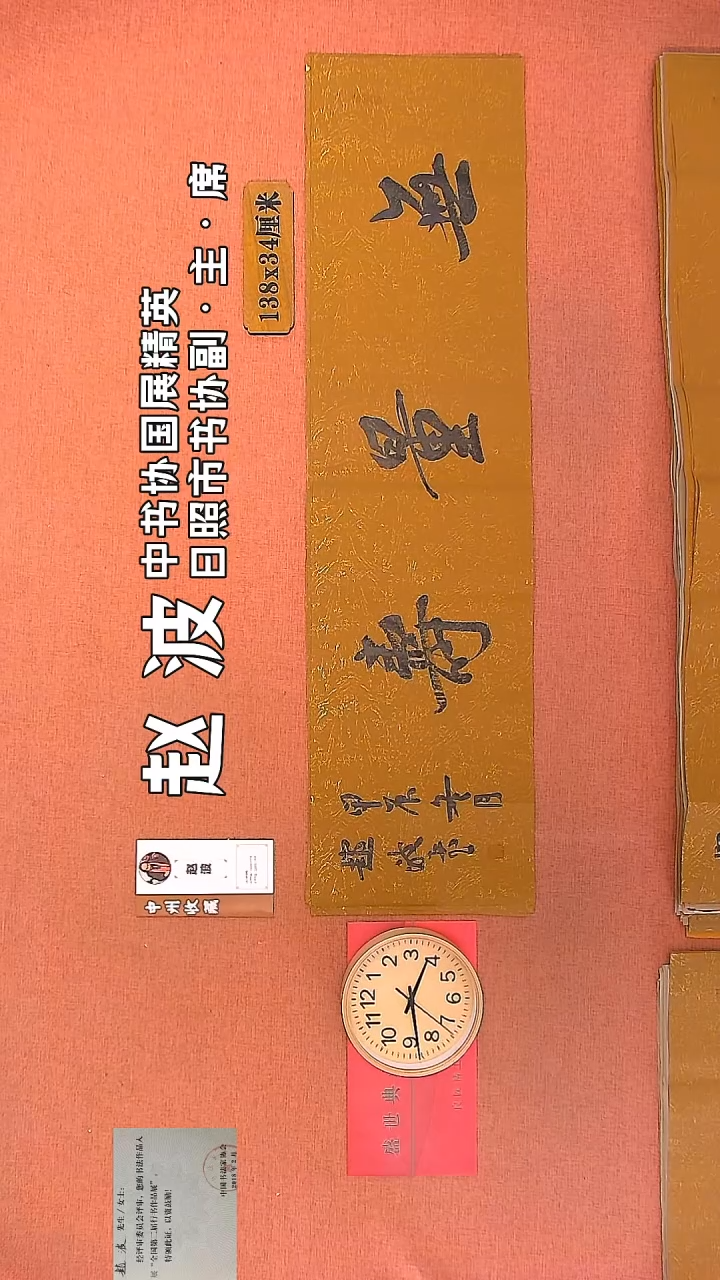 中书协国展精英
日照市书协副·主·席
赵波
138x34厘米
無量寿
赵波书
赵波
中州收藏
12
1
2
3
4
5
6
7
8
9
10
11
盛世典
赵波 先生/女士:
经评审委员会评审,您的书法作品入
展“全国第二届行书作品展”。
特颁此证,以资鼓励!
中国书法家协会